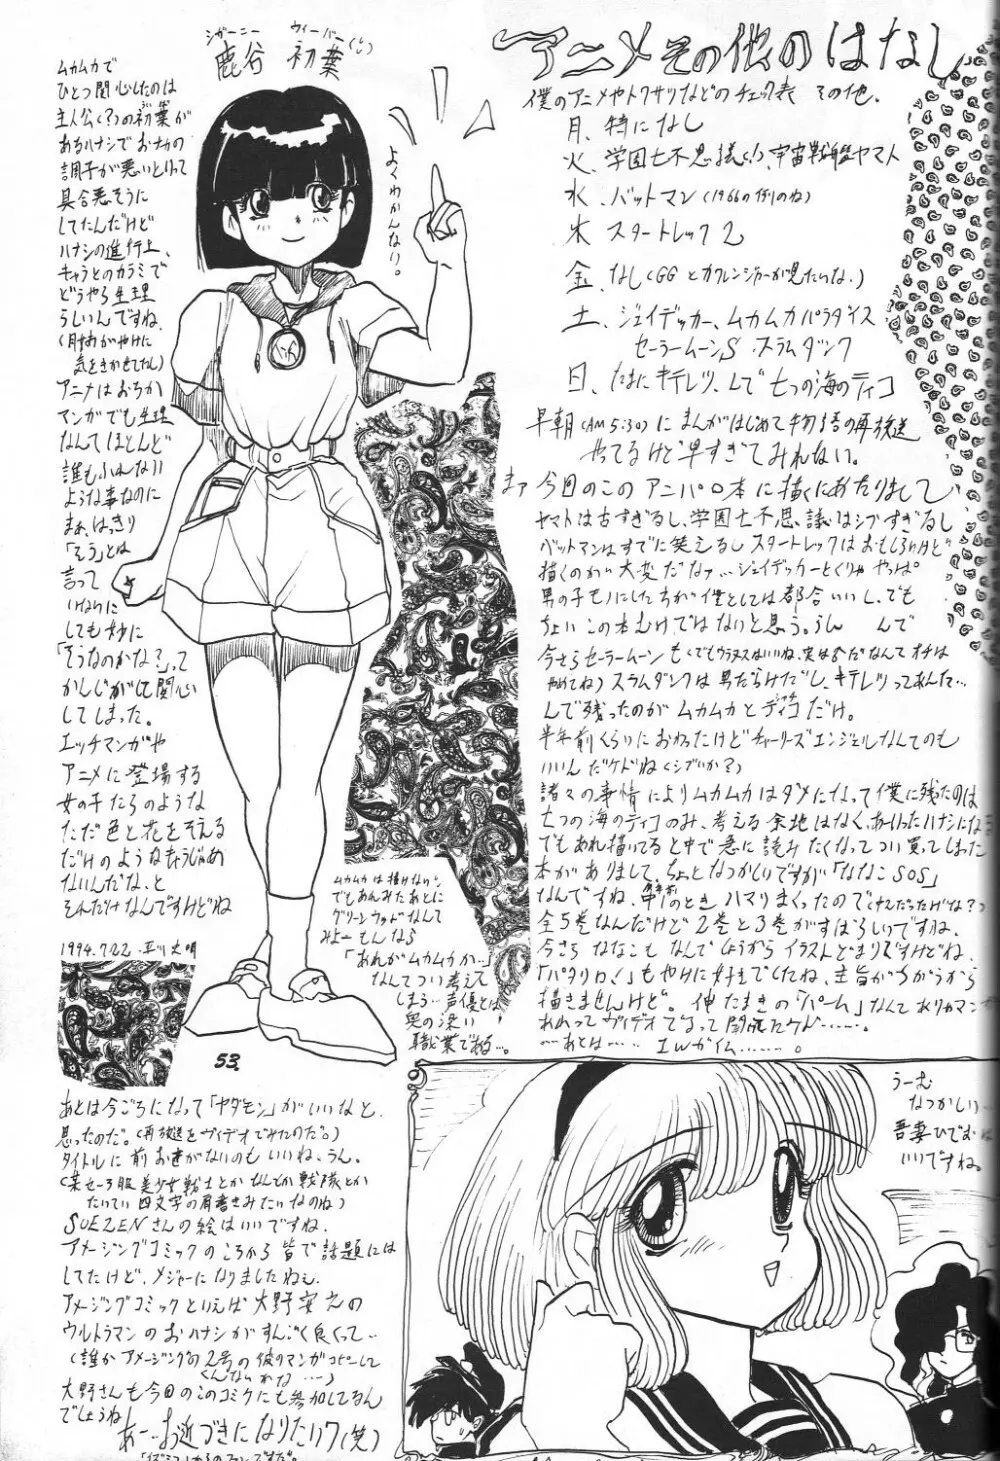 アニメその他のはなし
僕のアニメやトクサツなどのチェック表 その他、
月、特になし
火、学園七不思議(小)、宇宙戦艦ヤマト
水、バットマン(1966の作りのね)
木 スタートレック2
金、なし(GGとカクレンジャーが見たいな。)
土、ジェイデッカー、ムカムカパラダイス
セーラームーンS スラムダンク
日、たまにキテレツ、んで七つの海のティコ
早朝(AM5:30)にまんがはじめて物語の再放送
やってるけど早すぎてみれない。
まァ今回のこのアニパロ本に描くにあたりまして
ヤマトは古すぎるし、学園七不思議はシブすぎるし
バットマンはすでに笑えるしスタートレックはおもしろいけど
描くのが大変だなァ…ジェイデッカーとくりゃやっぱ
男の子モノにした方が僕としては都合いいし、でも
ちょいこの本むけではないと思う。うん んで
今さらセーラームーン
やめてね)スラムダンクは男だらけだし、キテレツってあんた…
んで残ったのがムカムカとティコだけ。
半年前くらいにおわったけどチャーリーズエンジェルなんてのも
いいんだケドね(シブいか?)
諸々の事情によりムカムカはダメになって僕に残ったのは
七つの海のティコのみ、考える余地はなく、あーいったハナシにな
でもあれ描いてると中で急に読みたくなってつい買ってしまった
本がありまして、ちょっとなつかしいですが「ななこSOS」
なんですね、中1のときハマりまくったので
全5巻なんだけど2巻と3巻がすばらしいですね、
今さらななこもなんでしょうからイラストどまりですけどね、
「パタリロ!」もやけに好きでしたね、主旨がちがうから
描きませんけど。伸たまきの「パーム」なんて
あとは……
鹿谷 初葉
シガーニー ウィーバー
よくわかんない。
ムカムカで
ひとつ関心したのは
主人公(?)の初葉が
あるハナシでおナカの
調子が悪いとかいって
具合悪そうに
してたんだけど
ハナシの進行上、
キャラとのカラミで
どうやら生理
らしいんですね、
気をきかせてたし)
アニメはおろか
マンガでも生理
なんてほとんど
誰もふれない
ような事なのに
まぁ、はっきり
「そう」とは
言って
いないに
しても妙に
「そうなのかな?」って
かんじがして関心
してしまった。
エッチマンガや
アニメに登場する
女の子たちのような
ただ色と花をそえる
だけのようなもんじゃあ
ないんだな、と
それだけなんですけどね
1994.7.22.
ムカムカは描けないッ
でもあんみたあとに
グリーンウッドなんて
みよーもんなら
「あれがムカムカか…」
なんてつい考えて
しまう…声優とは
奥の深い
職業である…。
53.
あとは今ごろになって「ヤダモン」がいいなと、
思ったのだ。(再放送をヴィデオでみたのだ。)
タイトルに前おきがないのもいいね、うん。
(某セーラー服美少女戦士とかなんとか戦隊とか
たいてい四文字の肩書きみたいなのね)
SUEZENさんの絵はいいですね、
アメージングコミックのころから皆で話題には
してたけど、メジャーになりましたねぇ、
アメージングコミックといえば大野安之の
ウルトラマンのおハナシがすんごく良くって…
(誰かアメージングの2号の彼のマンガコピーして
くんないかな…)
大野さんも今回のこのコミケにも参加してるん
でしょうね
あー…お近づきになりたいワ(笑)
うーむ
なつかしい…
吾妻ひでおは
いいですね。